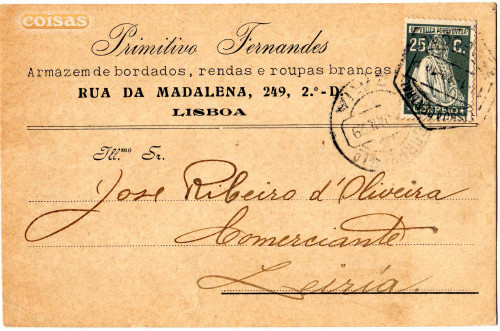 coisas
Primitivo Fernandes
Armazem de bordados, rendas e roupas brancas
RUA DA MADALENA, 249, 2.º-D.
LISBOA
REPUBLICA PORTUGUESA
25 C.
Ill.mo Sr.
Jose Ribeiro d'Oliveira
Comerciante
Leiria